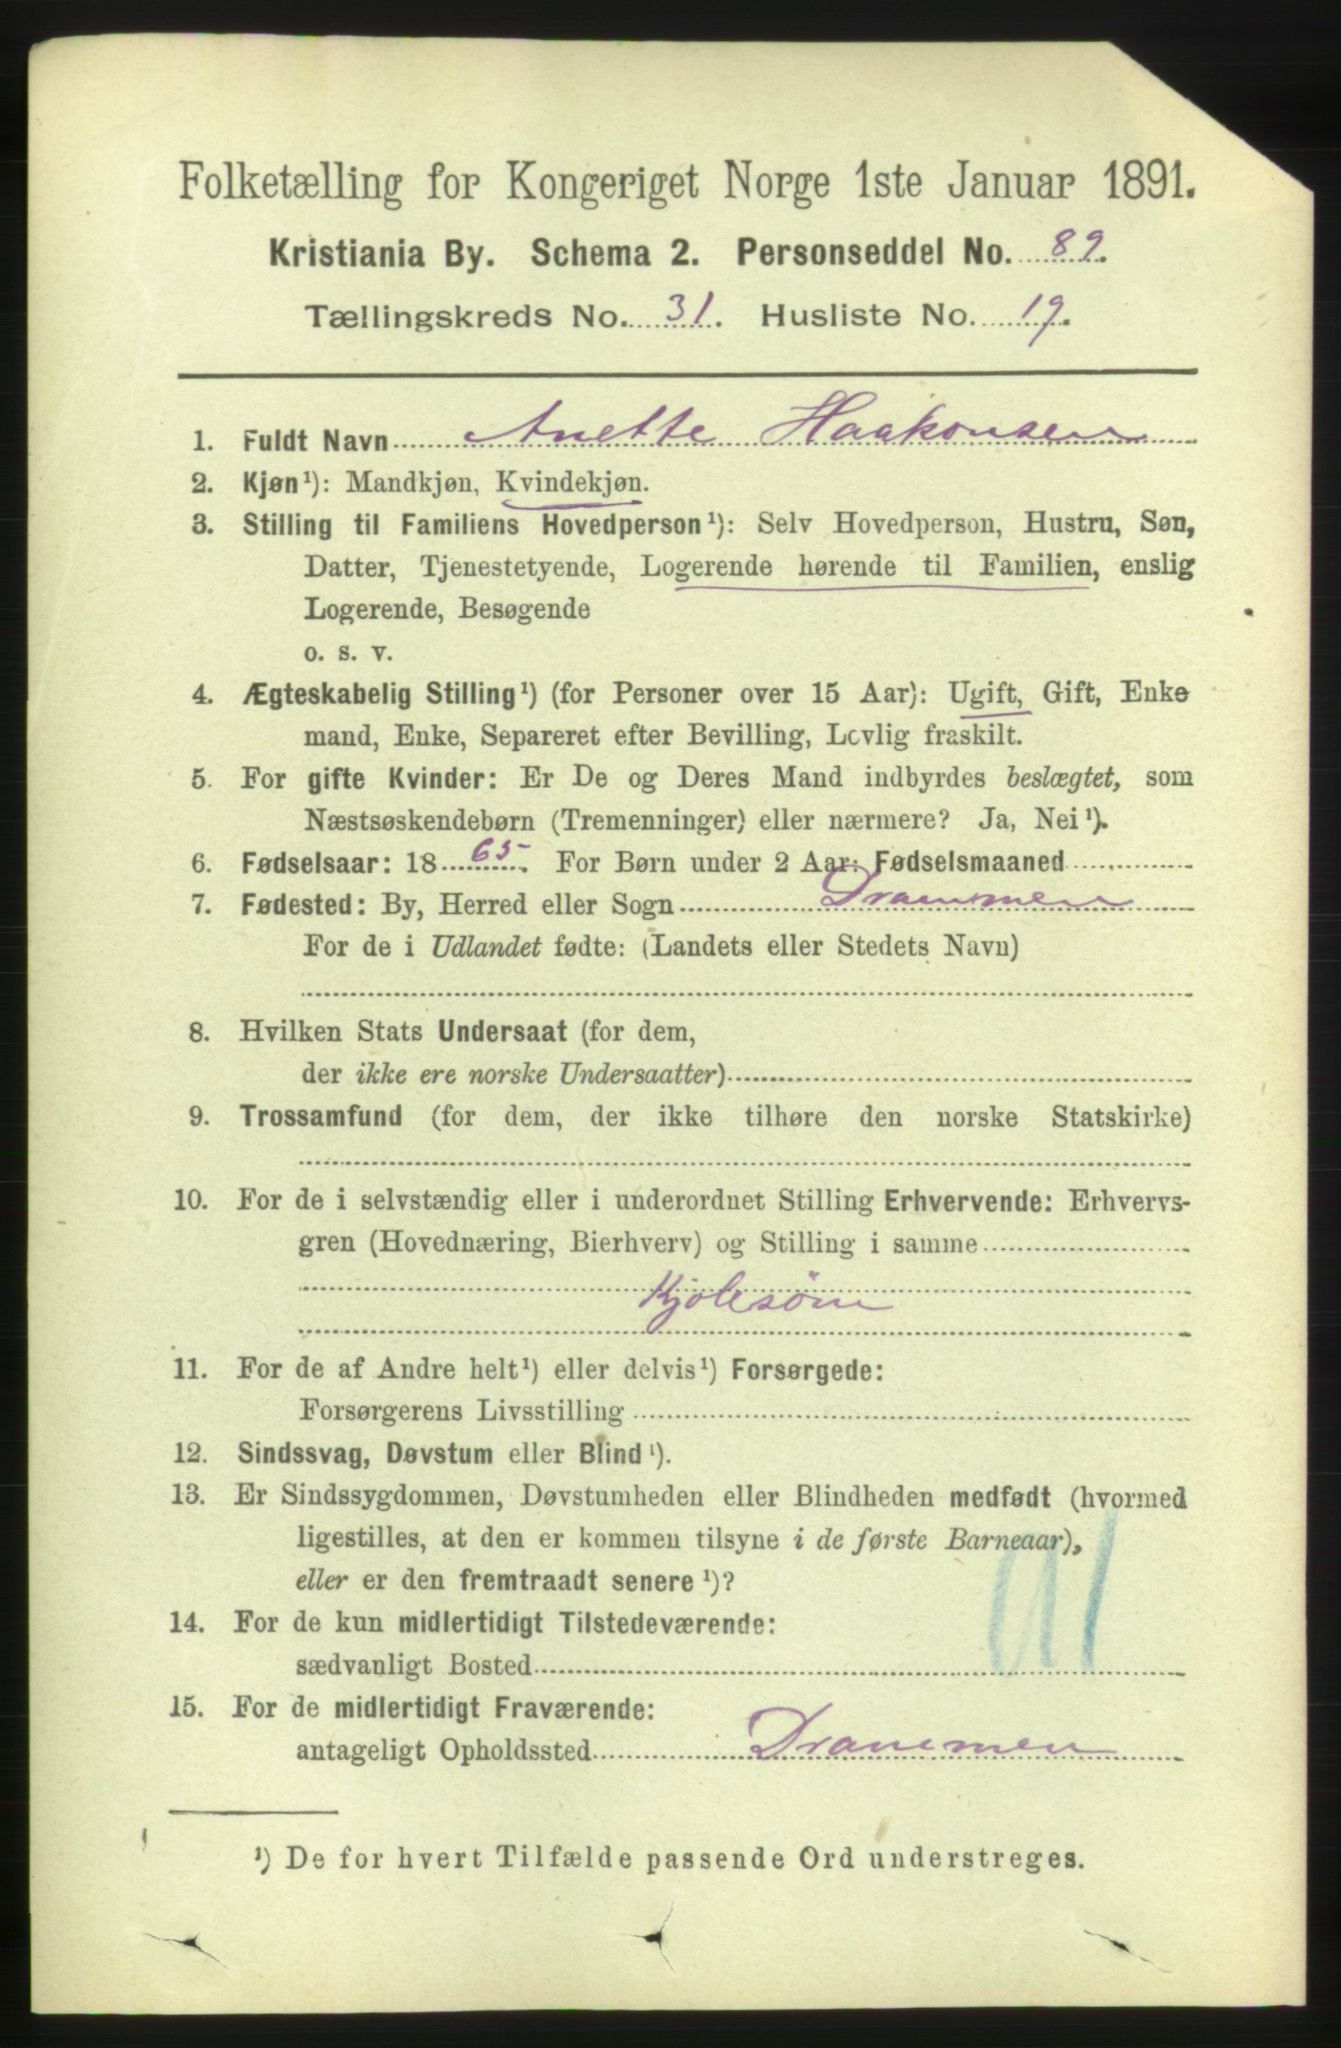 Folketælling for Kongeriget Norge 1ste Januar 1891.
Kristiania By. Schema 2. Personseddel No. 89.
Tællingskreds No. 31. Husliste No. 19.
1. Fuldt Navn Anette Haakonsen
2. Kjøn¹): Mandkjøn, Kvindekjøn.
3. Stilling til Familiens Hovedperson¹): Selv Hovedperson, Hustru, Søn,
Datter, Tjenestetyende, Logerende hørende til Familien, enslig
Logerende, Besøgende
o. s. v.
4. Ægteskabelig Stilling¹) (for Personer over 15 Aar): Ugift, Gift, Enke
mand, Enke, Separeret efter Bevilling, Lovlig fraskilt.
5. For gifte Kvinder: Er De og Deres Mand indbyrdes beslægtet, som
Næstsøskendebørn (Tremenninger) eller nærmere? Ja, Nei¹).
6. Fødselsaar: 1865. For Børn under 2 Aar: Fødselsmaaned
7. Fødested: By, Herred eller Sogn Drammen
For de i Udlandet fødte: (Landets eller Stedets Navn)
8. Hvilken Stats Undersaat (for dem,
der ikke ere norske Undersaatter)
9. Trossamfund (for dem, der ikke tilhøre den norske Statskirke)
10. For de i selvstændig eller i underordnet Stilling Erhvervende: Erhvervs-
gren (Hovednæring, Bierhverv) og Stilling i samme
Kjolesøm
11. For de af Andre helt¹) eller delvis¹) Forsørgede:
Forsørgerens Livsstilling
12. Sindssvag, Døvstum eller Blind¹).
13. Er Sindssygdommen, Døvstumheden eller Blindheden medfødt (hvormed
ligestilles, at den er kommen tilsyne i de første Barneaar),
eller er den fremtraadt senere¹)?
14. For de kun midlertidigt Tilstedeværende:
sædvanligt Bosted
15. For de midlertidigt Fraværende:
antageligt Opholdssted Drammen
¹) De for hvert Tilfælde passende Ord understreges.